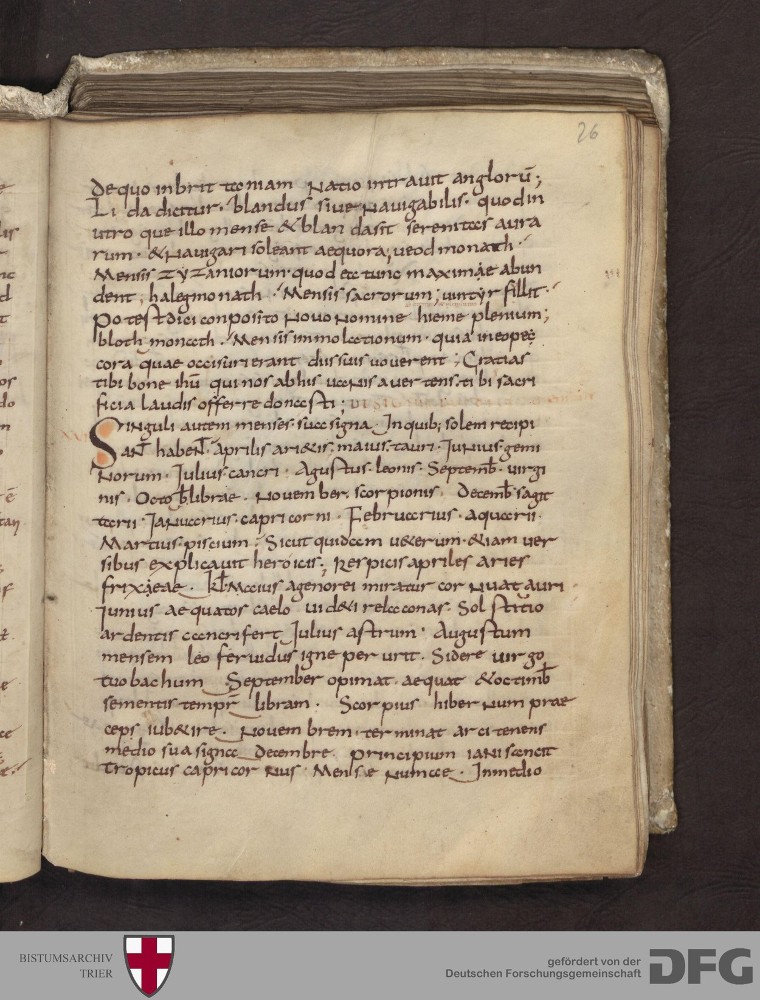 26
De quo in brittaniam Natio intravit anglorū;
Li da dicitur. blandus sive Navigabilis. quod in
utro que illo mense & blan dasit serenitas aura
rum. & Navigari soleant aequora; veod monath.
Mensis zyzaniorum. quod ea tunc maximae abun
dent, halegmonath. Mensis sacrorum; vintyr fillit.
Potest dici conposito Novo Nomine hieme plenium;
bloth monath. Mensis immolationum. quia in eo pec
cora quae occisuri erant diis suis voverent; Gratias
tibi bone ihū qui nos ab his vanis avertens. tibi sacri
ficia laudis offerre donasti;
Singuli autem menses. sua signa. In quib; solem recipi
ant habent. Aprilis ari&is. maius. tauri. Junius. gemi
Norum. Julius. cancri. Agustus. leonis. Septemb. virgi
nis. Octob. librae. November. scorpionis. Decemb. sagit
tarii. Januarius. capri corni. Februarius. aquarii.
Martius. piscium. Sicut quidam v&erum. &iam ver
sibus explicavit heroicis; Respicis apriles aries
frixaeae. kl Maius agenorei miratur cornua tauri.
Junius aequatos caelo vid&i re laconas. Sol stitio
ardentis cancri fert Julius astrum. Augustum
mensem leo fervidus igne per urit. Sidere virgo
tuo bachum September opimat. aequat & octimb
sementis tempr libram. Scorpius hibernum prae
ceps iub& ire. Novembrem. terminat arcitenens
medio sua signa Decembre. principium iani sancit
tropicus capricornus. Mense Numae. In medio
BISTUMSARCHIV
TRIER
gefördert von der
Deutschen Forschungsgemeinschaft
DFG